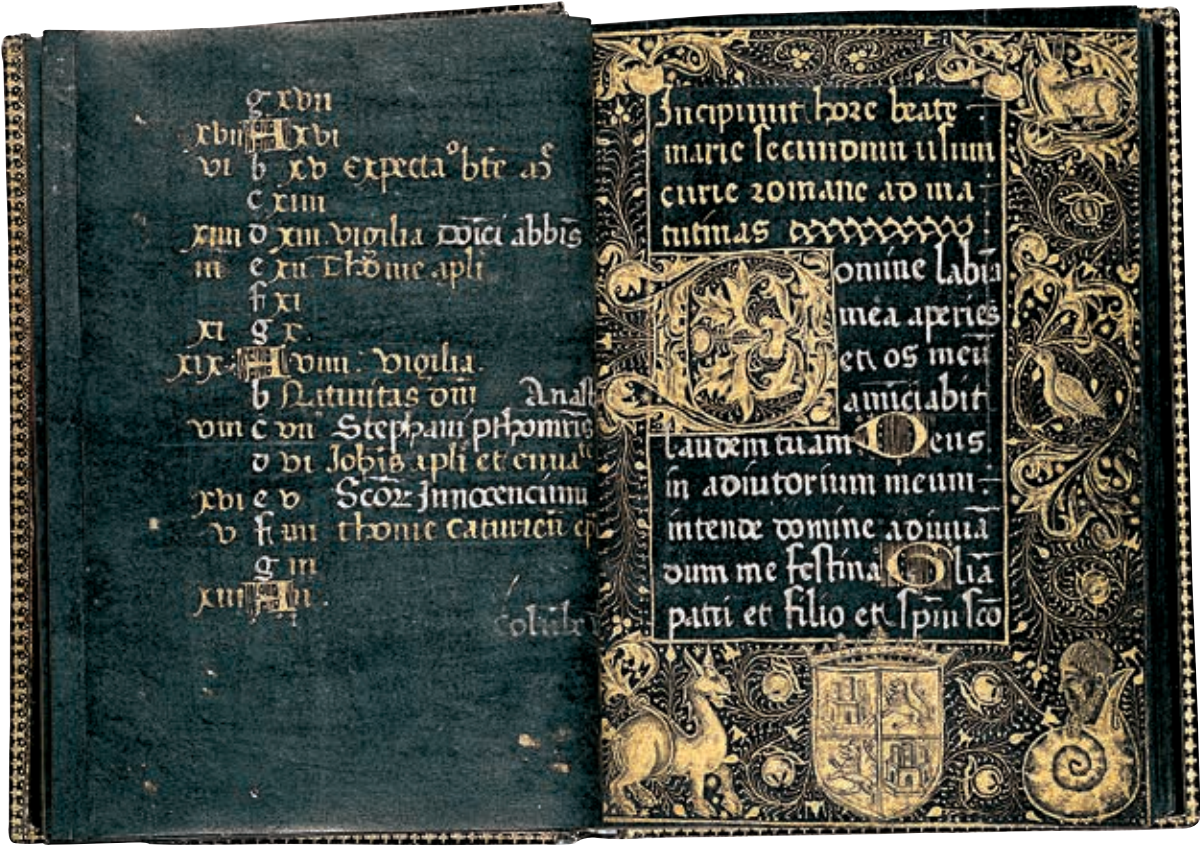 g xvii
xvii A xvi
vi b xv Expectaº bte
c xiiii
xiiii d xiii vigilia abbīs
iii e xii Thome apli
f xi
xi g x.
xix A viiii vigilia.
b Natiuitas dnī Anast
viii c vii Stephani
d vi Johis apli et
xvi e v Scor Innocencium
v f iiii thome
g iii
xiii A ii.
Incipiunt hore beate
marie secundum usum
curie romane ad ma
tutinas
Domine labia
mea aperies
et os meū
anūciabit
laudem tuam Deus
in adiutorium meum
intende domine adiuuā
dum me festina Glīa
patri et filio et spīui scō